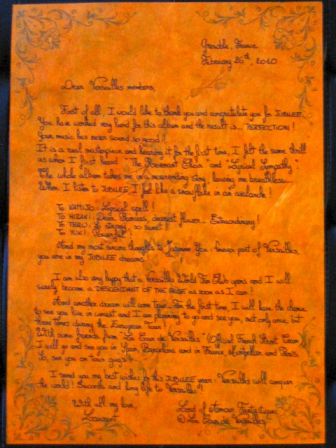 Grenoble, France
February 26th, 2010
Dear Versailles members,
First of all, I would like to thank you and congratulate you for JUBILEE.
You have worked very hard for this album and the result is... PERFECTION!
Your music has never sound so good!
It is a real masterpiece and hearing it for the first time, I felt the same thrill
as when I first heard "The Revenant Choir" and "Lyrical Sympathy".
The whole album takes me in a neverending story, leaving me breathless...
When I listen to JUBILEE I feel like a snowflake in an avalanche!
To KAMIJO: Lyrical spell!
To HIZAKI: Dear Princess, dearest flower... Extraordinary!
To TERU: So strong, so sweet!
To YUKI:
And my most sincere thoughts to Jasmine You: forever part of Versailles,
you are in my JUBILEE dreams.
I am also very happy that a Versailles World Fan Club opens and I will
surely become a DESCENDANT OF THE ROSE as soon as I can!
And another dream will come true: For the first time, I will have the chance
to see you live in concert and I am planning to go and see you, not only once, but
three times during the European Tour!
With some friends from "La Cour de Versailles" (Official French Street Team)
I will go and see you in Spain, Barcelona and in France, Montpellier and Paris.
So, see you on Tour
I send you my best wishes for this JUBILEE year: Versailles will conquer
the world! Sincerely and long life to Versailles!
With all my love,
La Cour de Versailles